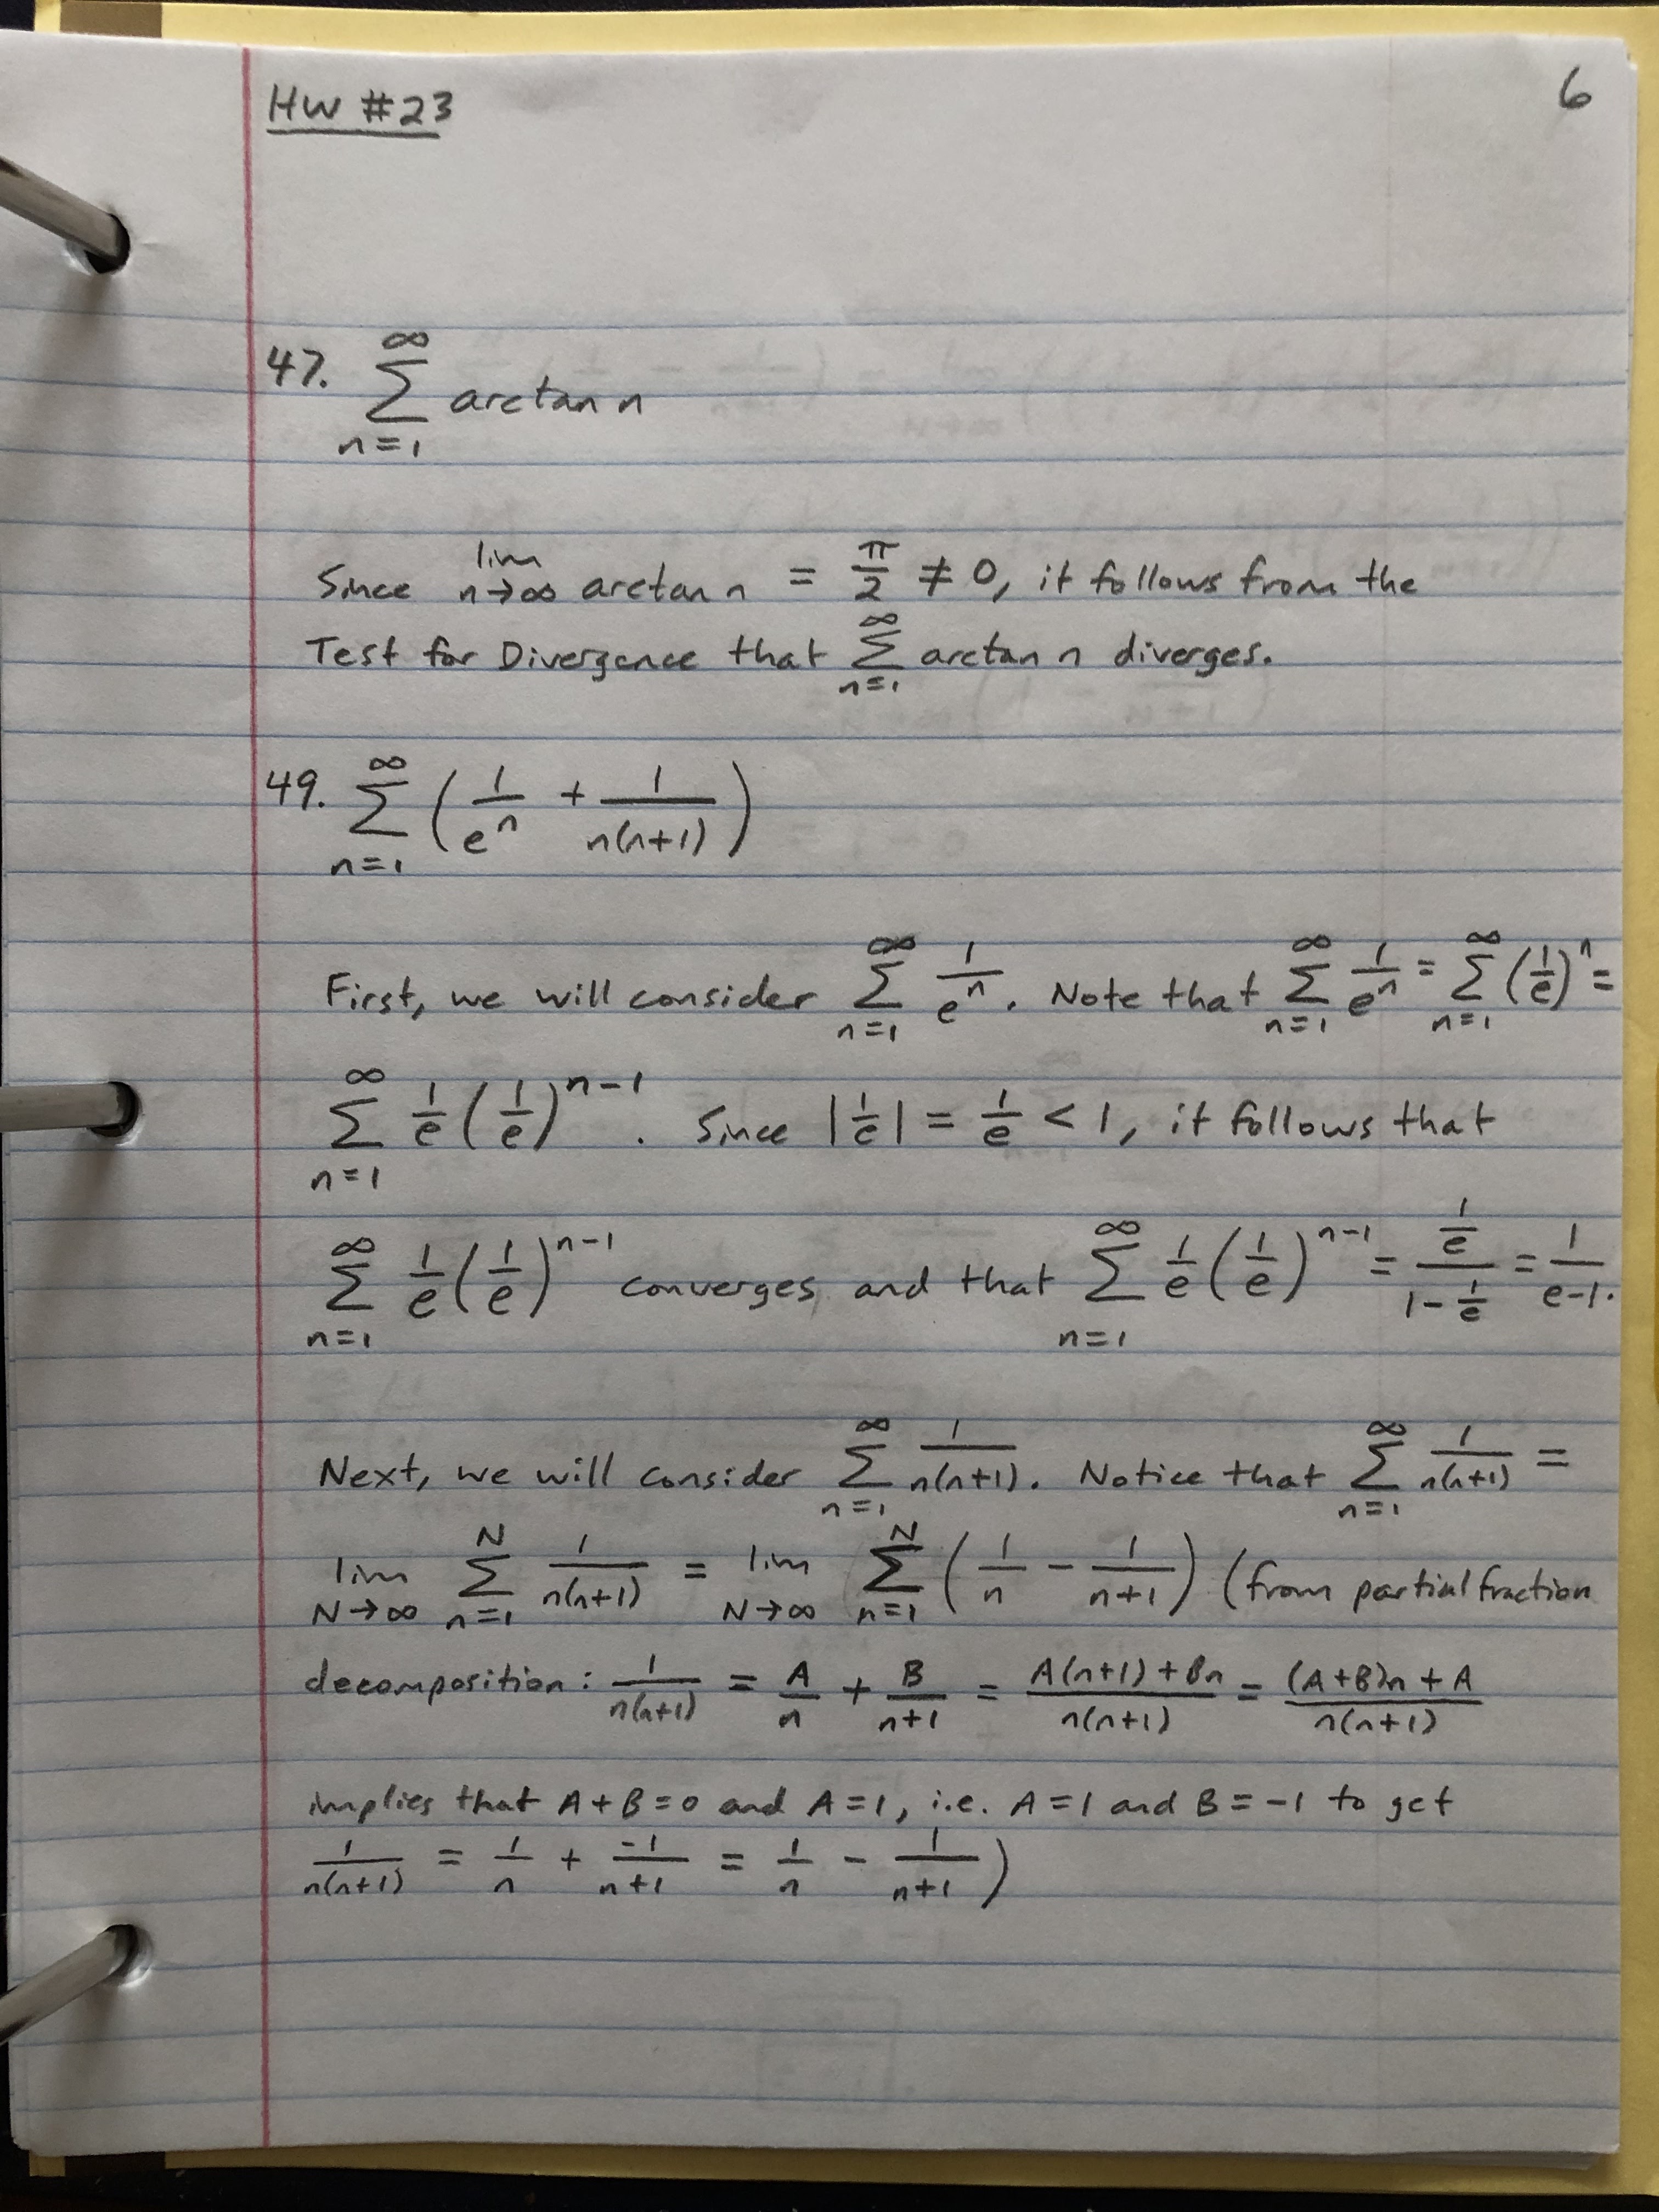 HW #23
6
47. ∑_{n=1}^{∞} arctan n
Since lim_{n→∞} arctan n = π/2 ≠ 0, it follows from the
Test for Divergence that ∑_{n=1}^{∞} arctan n diverges.
49. ∑_{n=1}^{∞} (1/e^n + 1/(n(n+1)))
First, we will consider ∑_{n=1}^{∞} 1/e^n. Note that ∑_{n=1}^{∞} 1/e^n = ∑_{n=1}^{∞} (1/e)^n =
∑_{n=1}^{∞} 1/e (1/e)^{n-1}. Since |1/e| = 1/e < 1, it follows that
∑_{n=1}^{∞} 1/e (1/e)^{n-1} converges and that ∑_{n=1}^{∞} 1/e (1/e)^{n-1} = (1/e)/(1-1/e) = 1/(e-1).
Next, we will consider ∑_{n=1}^{∞} 1/(n(n+1)). Notice that ∑_{n=1}^{∞} 1/(n(n+1)) =
lim_{N→∞} ∑_{n=1}^{N} 1/(n(n+1)) = lim_{N→∞} ∑_{n=1}^{N} (1/n - 1/(n+1)) (from partial fraction
decomposition: 1/(n(n+1)) = A/n + B/(n+1) = (A(n+1)+Bn)/(n(n+1)) = ((A+B)n+A)/(n(n+1))
implies that A+B=0 and A=1, i.e. A=1 and B=-1 to get
1/(n(n+1)) = 1/n + -1/(n+1) = 1/n - 1/(n+1))